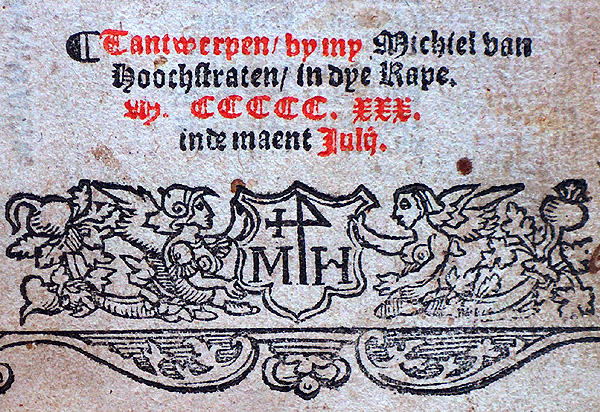 ⸿ Tantwerpen/ by my Michiel van
Hoochstraten/ in dye Rape.
CCCCC. XXX.
inde maent Julij.
M H